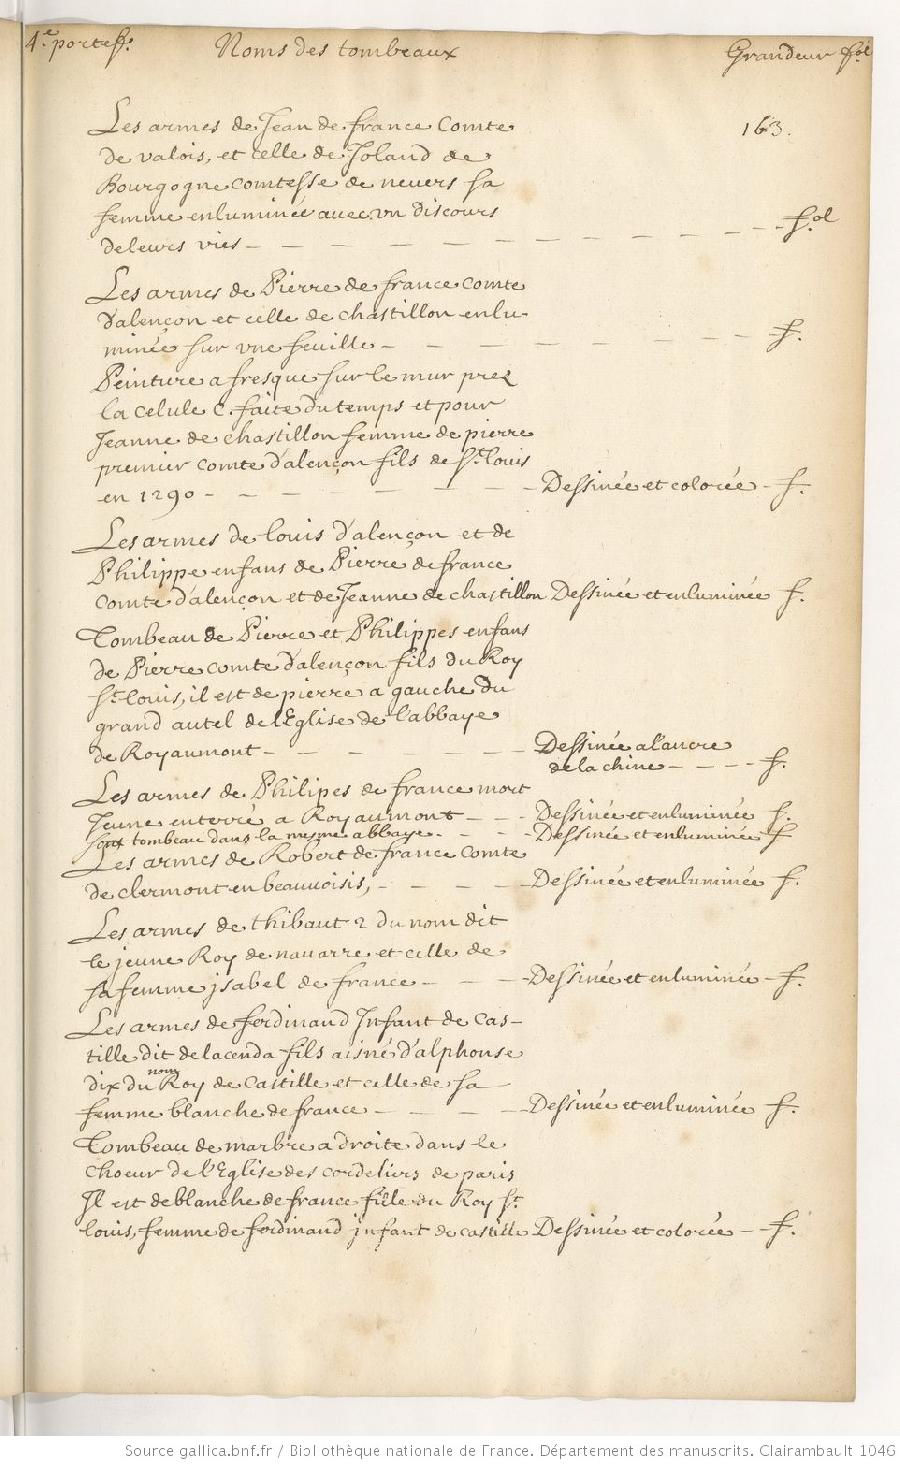 4.e portef. Noms des tombeaux Grandeur fol
163.
Les armes de Jean de france Comte
de valois, et celle de Joland de
Bourgogne comtesse de nevers sa
femme enluminée avec vn discours
de leurs vies - - - - - - - - - - fol
Les armes de Pierre de france comte
d'alençon et celle de chastillon enlu
minée sur vne feuille - - - - - - - - f.
Peinture a fresque sur le mur prez
la celule C. faite du temps et pour
Jeanne de chastillon femme de pierre
premier comte d'alençon fils de St. louis
en 1290 - - - - - - - Dessinée et colorée - f.
Les armes de louis d'alençon et de
Philippe enfans de Pierre de france
comte d'alençon et de Jeanne de chastillon Dessinée et enluminée f.
Tombeau de Pierre et Philippes enfans
de Pierre comte d'alençon fils du Roy
St. louis, il est de pierre a gauche du
grand autel de l'Eglise de l'abbaye
de Royaumont - - - - - - Dessinée a l'ancre
de la chine - - - - f.
Les armes de Philipes de france mort
jeune enterré a Royaumont - - - Dessinée et enluminée f.
son tombeau dans la mesme abbaye - - - Dessinée et enluminée f
Les armes de Robert de france comte
de clermont en beauvoisis, - - - - Dessinée et enluminée f.
Les armes de thibaut 2 du nom dit
le jeune Roy de navarre et celle de
sa femme jsabel de france - - - Dessinée et enluminée - f.
Les armes de ferdinand Jnfant de cas-
tille dit de lacerda fils aisné d'alphonse
dix du nom Roy de Castille et celle de sa -
femme blanche de france - - - - Dessinée et enluminée f.
Tombeau de marbre a droite dans le
choeur de l'Eglise des cordeliers de paris
Jl est de blanche de france fille du Roy St.
louis, femme de ferdinand jnfant de castille Dessinée et colorée - f.
Source gallica.bnf.fr / Bibliothèque nationale de France. Département des manuscrits. Clairambault 1046